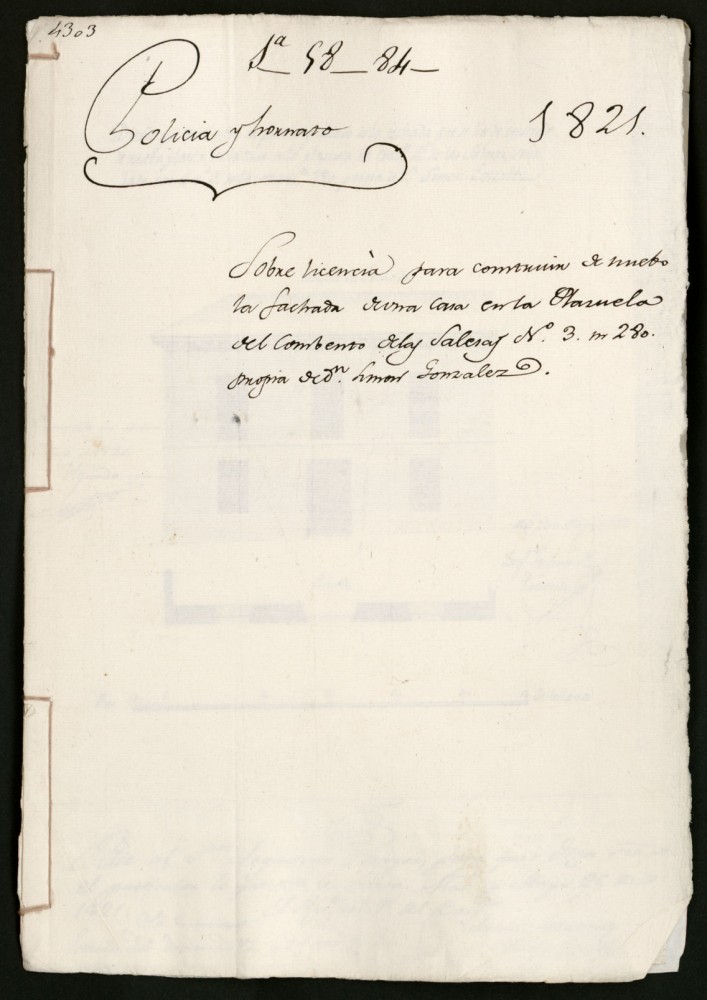 4303
1ª 58 - 84 -
Policia y hornato
1821.
Sobre licencia para construir de nuebo
la fachada de una casa en la Plazuela
del Combento de las Salesas N.º 3. m 280.
propia de Dn. Simon Gonzalez.